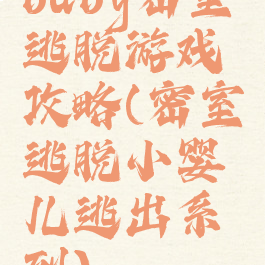 baby密室
逃脱游戏
攻略(密室
逃脱小婴
儿逃出系
列)